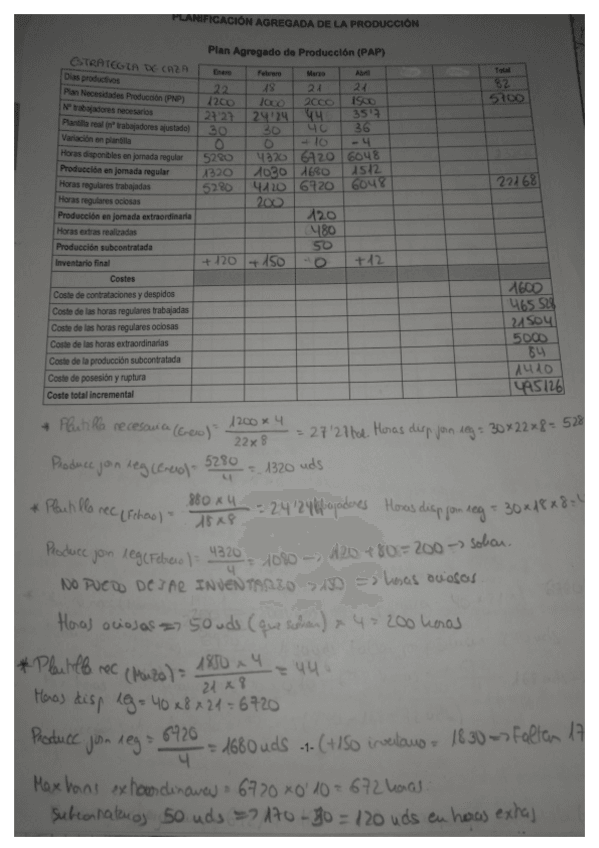 PLANIFICACIÓN AGREGADA DE LA PRODUCCIÓN
Plan Agregado de Producción (PAP)
ESTRATEGIA DE CAZA Enero Febrero Marzo Abril Total
Días productivos 22 18 21 21 82
Plan Necesidades Producción (PNP) 1200 1000 2000 1500 5700
Nº trabajadores necesarios 27'27 24'24 44 35'7
Plantilla real (nº trabajadores ajustado) 30 30 40 36
Variación en plantilla 0 0 +10 -4
Horas disponibles en jornada regular 5280 4320 6720 6048
Producción en jornada regular 1320 1030 1680 1512
Horas regulares trabajadas 5280 4120 6720 6048 22168
Horas regulares ociosas 200
Producción en jornada extraordinaria 120
Horas extras realizadas 480
Producción subcontratada 50
Inventario final +120 +150 0 +12
Costes
Coste de contrataciones y despidos 1600
Coste de las horas regulares trabajadas 465528
Coste de las horas regulares ociosas 21504
Coste de las horas extraordinarias 5000
Coste de la producción subcontratada 84
Coste de posesión y ruptura 1410
Coste total incremental 495126
* Plantilla necesaria (Enero) = 1200 x 4 / 22 x 8 = 27'27 Horas disp jorn reg = 30 x 22 x 8 = 528
Producc jorn reg (Enero) = 5280 / 4 = 1320 uds
* Plantilla nec (Febrero) = 880 x 4 / 18 x 8 = 24'24 trabajadores Horas disp jorn reg = 30 x 18 x 8 =
Producc jorn reg (Febrero) = 4320 / 4 = 1080 → 120 + 80 = 200 → sobran.
NO PUEDO DEJAR INVENTARIO > 150 => horas ociosas
Horas ociosas => 50 uds (que sobran) x 4 = 200 horas
* Plantilla nec (Marzo) = 1850 x 4 / 21 x 8 = 44
Horas disp reg = 40 x 8 x 21 = 6720
Producc jorn reg = 6720 / 4 = 1680 uds -1- (+150 inventario = 1830 => Faltan 17
Max horas extraordinarias = 6720 x 0'10 = 672 horas.
Subcontratamos 50 uds => 170 - 50 = 120 uds en horas extras